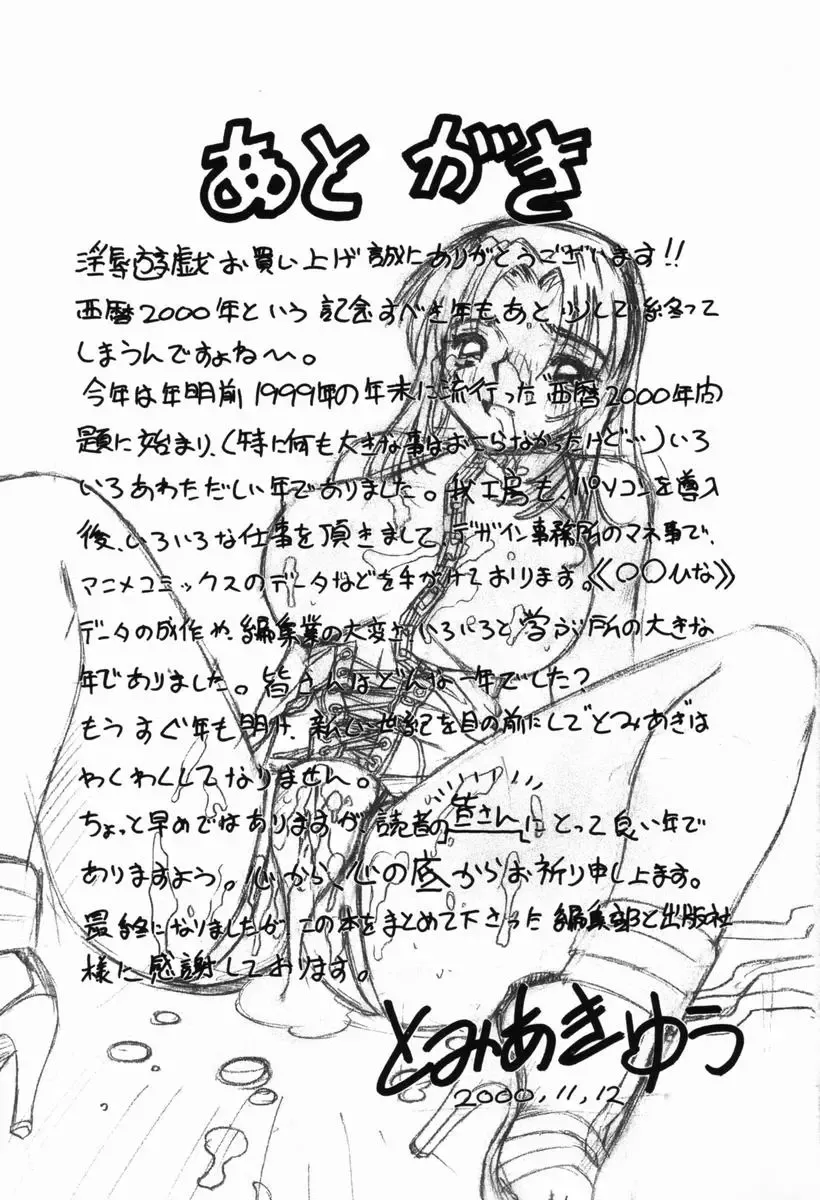 あとがき
淫辱遊戯お買い上げ誠にありがとうございます!!
西暦2000年という記念すべき年も、あと少しで終って
しまうんですよね～。
今年は年明前1999年の年末に流行った西暦2000年問
題に始まり、(特に何も大きな事はおこらなかったけど…)いろ
いろあわただしい年でありました。我工房も、パソコンを導入
後、いろいろな仕事を頂きまして、デザイン事務所のマネ事で、
アニメコミックスのデータなどを手がけております。《〇〇ひな》
データの成作や、編集業の大変さいろいろと学ぶ所の大きな
年でありました。皆さんはどんな一年でした?
もうすぐ年も明け、新しい世紀を目の前にしてとみあきは
わくわくしてなりません。
ちょっと早めではありますが読者の皆さんにとって良い年で
ありますよう。心から、心の底からお祈り申し上ます。
最終になりましたが この本をまとめて下さった編集部と出版社
様に感謝しております。
とみあきゆう
2000,11,12